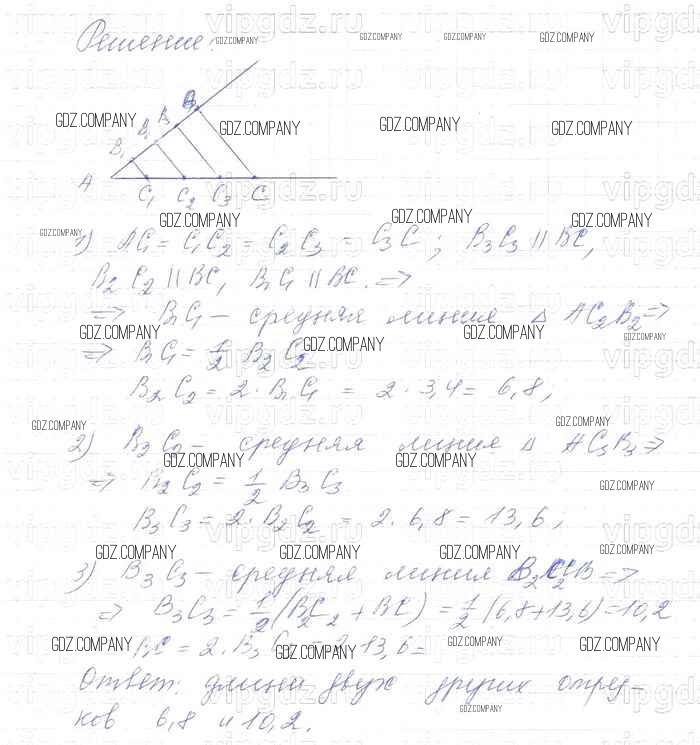 Решение:
A B₁ B₂ B₃ B
C₁ C₂ C₃ C
1) AC₁ = C₁C₂ = C₂C₃ = C₃C ; B₃C₃ || BC,
B₂C₂ || BC, B₁C₁ || BC. =>
=> B₁C₁ – средняя линия △ AC₂B₂ =>
=> B₁C₁ = 1/2 B₂C₂
B₂C₂ = 2 · B₁C₁ = 2 · 3,4 = 6,8 ;
2) B₂C₂ – средняя линия △ AC₃B₃ =>
=> B₂C₂ = 1/2 B₃C₃
B₃C₃ = 2 · B₂C₂ = 2 · 6,8 = 13,6 ;
3) B₃C₃ – средняя линия B₂C₂CB =>
=> B₃C₃ = 1/2 (B₂C₂ + BC) = 1/2 (6,8 + 13,6) = 10,2
BC = 2 · B₃C₃ = 2 · 13,6 =
Ответ: длина двух других отрез-
ков 6,8 и 10,2.
GDZ.COMPANY
vipgdz.ru